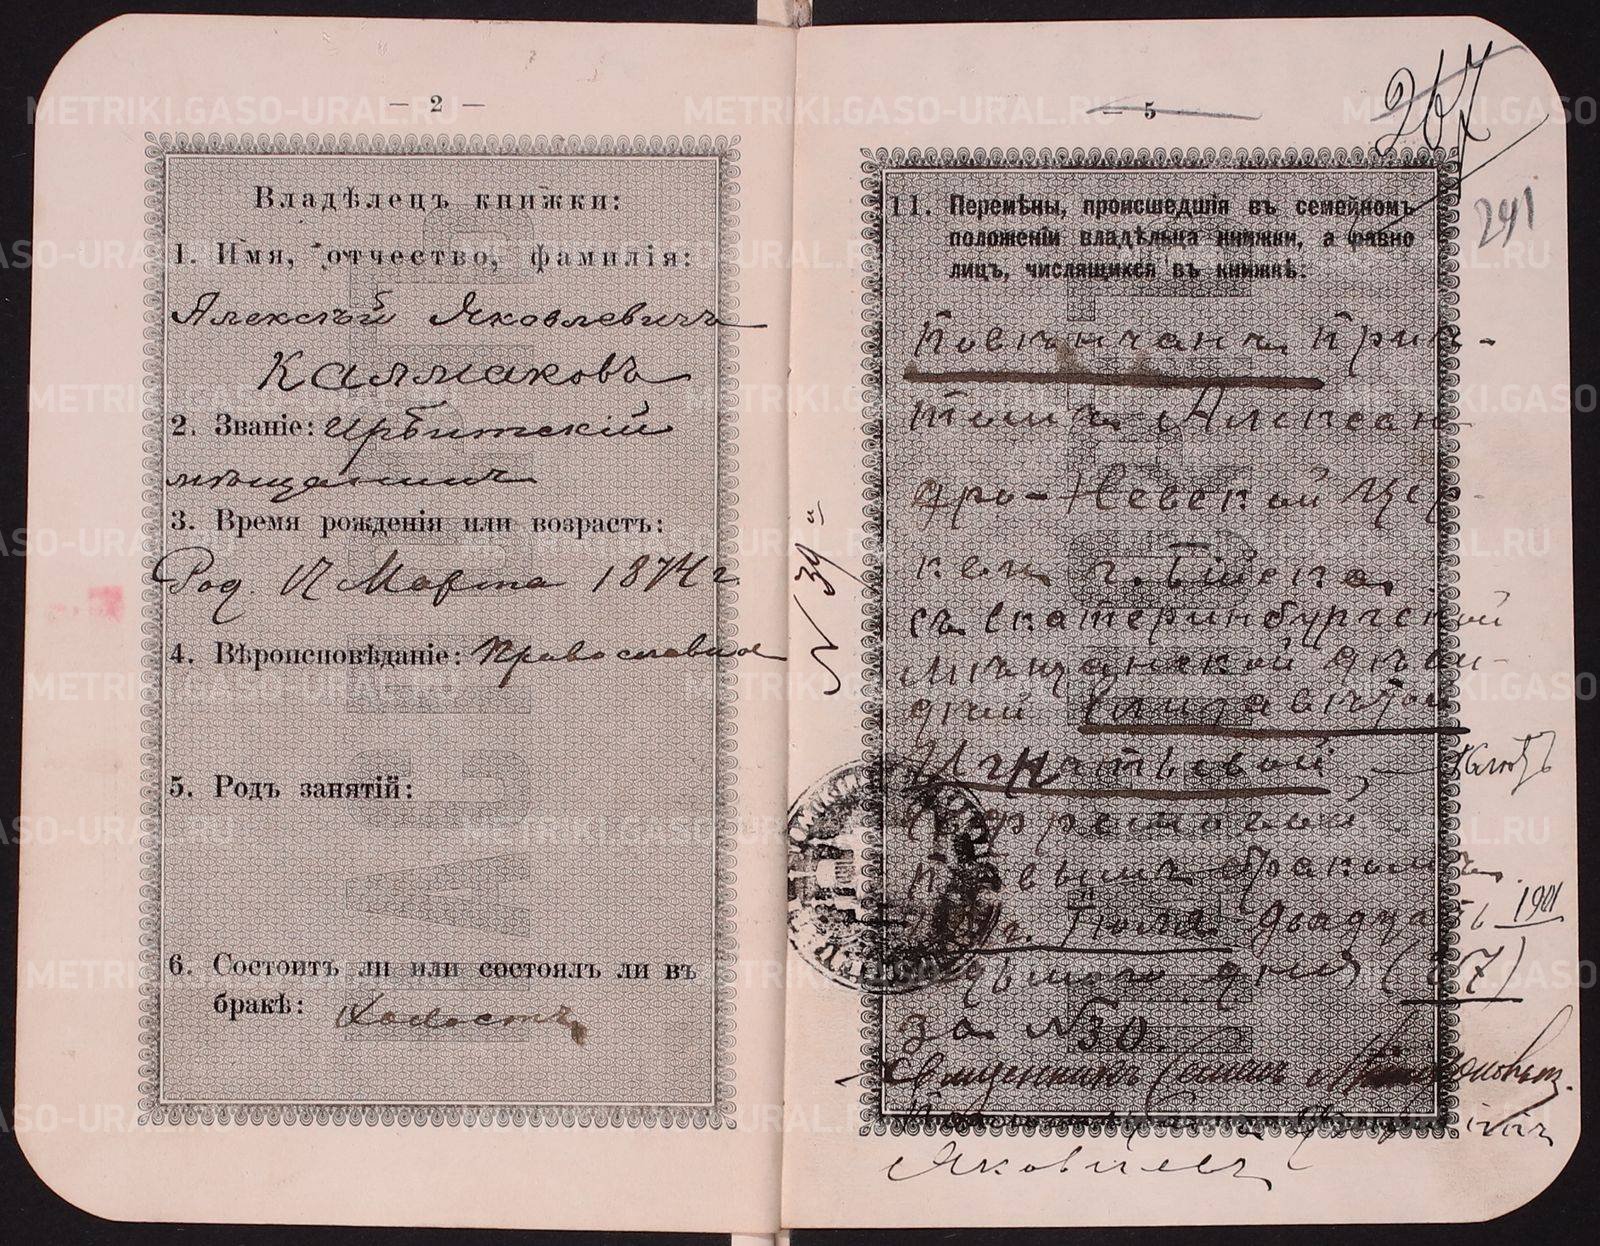 — 2 —
Владѣлецъ книжки:
1. Имя, отчество, фамилія:
Алексѣй Яковлевичъ
Калмаковъ
2. Званіе: Ирбитскій
мѣщанинъ
3. Время рожденія или возрастъ:
Род. 12 Марта 1874 г
4. Вѣроисповѣданіе: Православное
5. Родъ занятій:
6. Состоитъ ли или состоялъ ли въ
бракѣ: Холостъ
— 5
267
241
11. Перемѣны, происшедшія въ семейномъ
положеніи владѣльца книжки, а равно
лицъ, числящихся въ книжкѣ:
Повѣнчанъ прич-
томъ Алексан
дро-Невской Цер
кви г. Бійска
съ Екатеринбургской
мѣщанской дѣви-
цей Елизаветой
Игнатьевой
первымъ бракомъ
Іюля двадца ть 1901
седьмого дня (27)
за № 30.
Священникъ
Яковлевъ
№ 39
METRIKI.GASO-URAL.RU